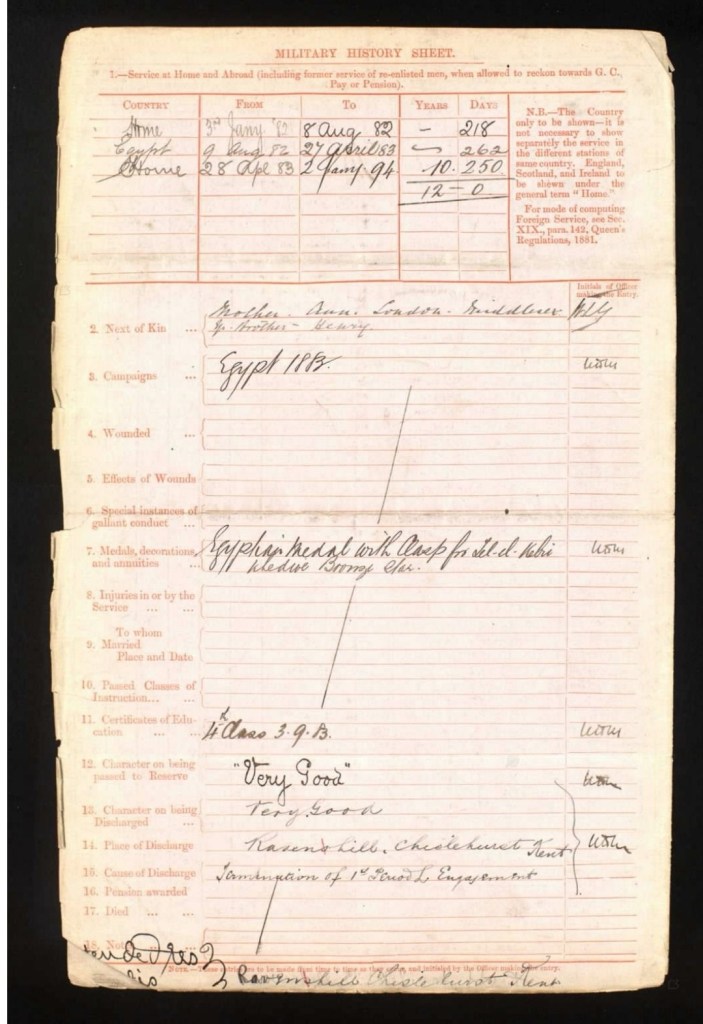 MILITARY HISTORY SHEET.
1.—Service at Home and Abroad (including former service of re-enlisted men, when allowed to reckon towards G. C.
Pay or Pension).
COUNTRY FROM TO YEARS DAYS
Home 3rd Jany '82 8 Aug 82 – 218
Egypt 9 Aug 82 27 April 83 – 262
Home 28 Apl 83 2 Jany 94 10. 250
12 – 0
N.B.—The Country
only to be shown—it is
not necessary to show
separately the service in
the different stations of
same country. England,
Scotland, and Ireland to
be shown under the
general term "Home."
For mode of computing
Foreign Service, see Sec.
XIX., para. 142, Queen's
Regulations, 1881.
Initials of Officer
making the Entry.
2. Next of Kin ... Mother. Ann. London. Middlesex
Yr. Brother – Henry.
3. Campaigns ... Egypt 1882.
4. Wounded ...
5. Effects of Wounds
6. Special instances of
gallant conduct ...
7. Medals, decorations,
and annuities ... Egyptian Medal with Clasp for Tel-el-Kebir
Khedive Bronze Star.
8. Injuries in or by the
Service ... ...
To whom
9. Married
Place and Date
10. Passed Classes of
Instruction... ...
11. Certificates of Edu-
cation ... ... 4th Class 3.9.83.
12. Character on being
passed to Reserve "Very Good"
13. Character on being
Discharged ... Very Good
14. Place of Discharge Ravenshill, Chislehurst Kent
15. Cause of Discharge Termination of 1st Period L. Engagement
16. Pension awarded
17. Died ... ...
18. Not
NOTE.—These entries are to be made from time to time as they occur, and initialed by the Officer making the entry.
Ravenshill Chislehurst Kent